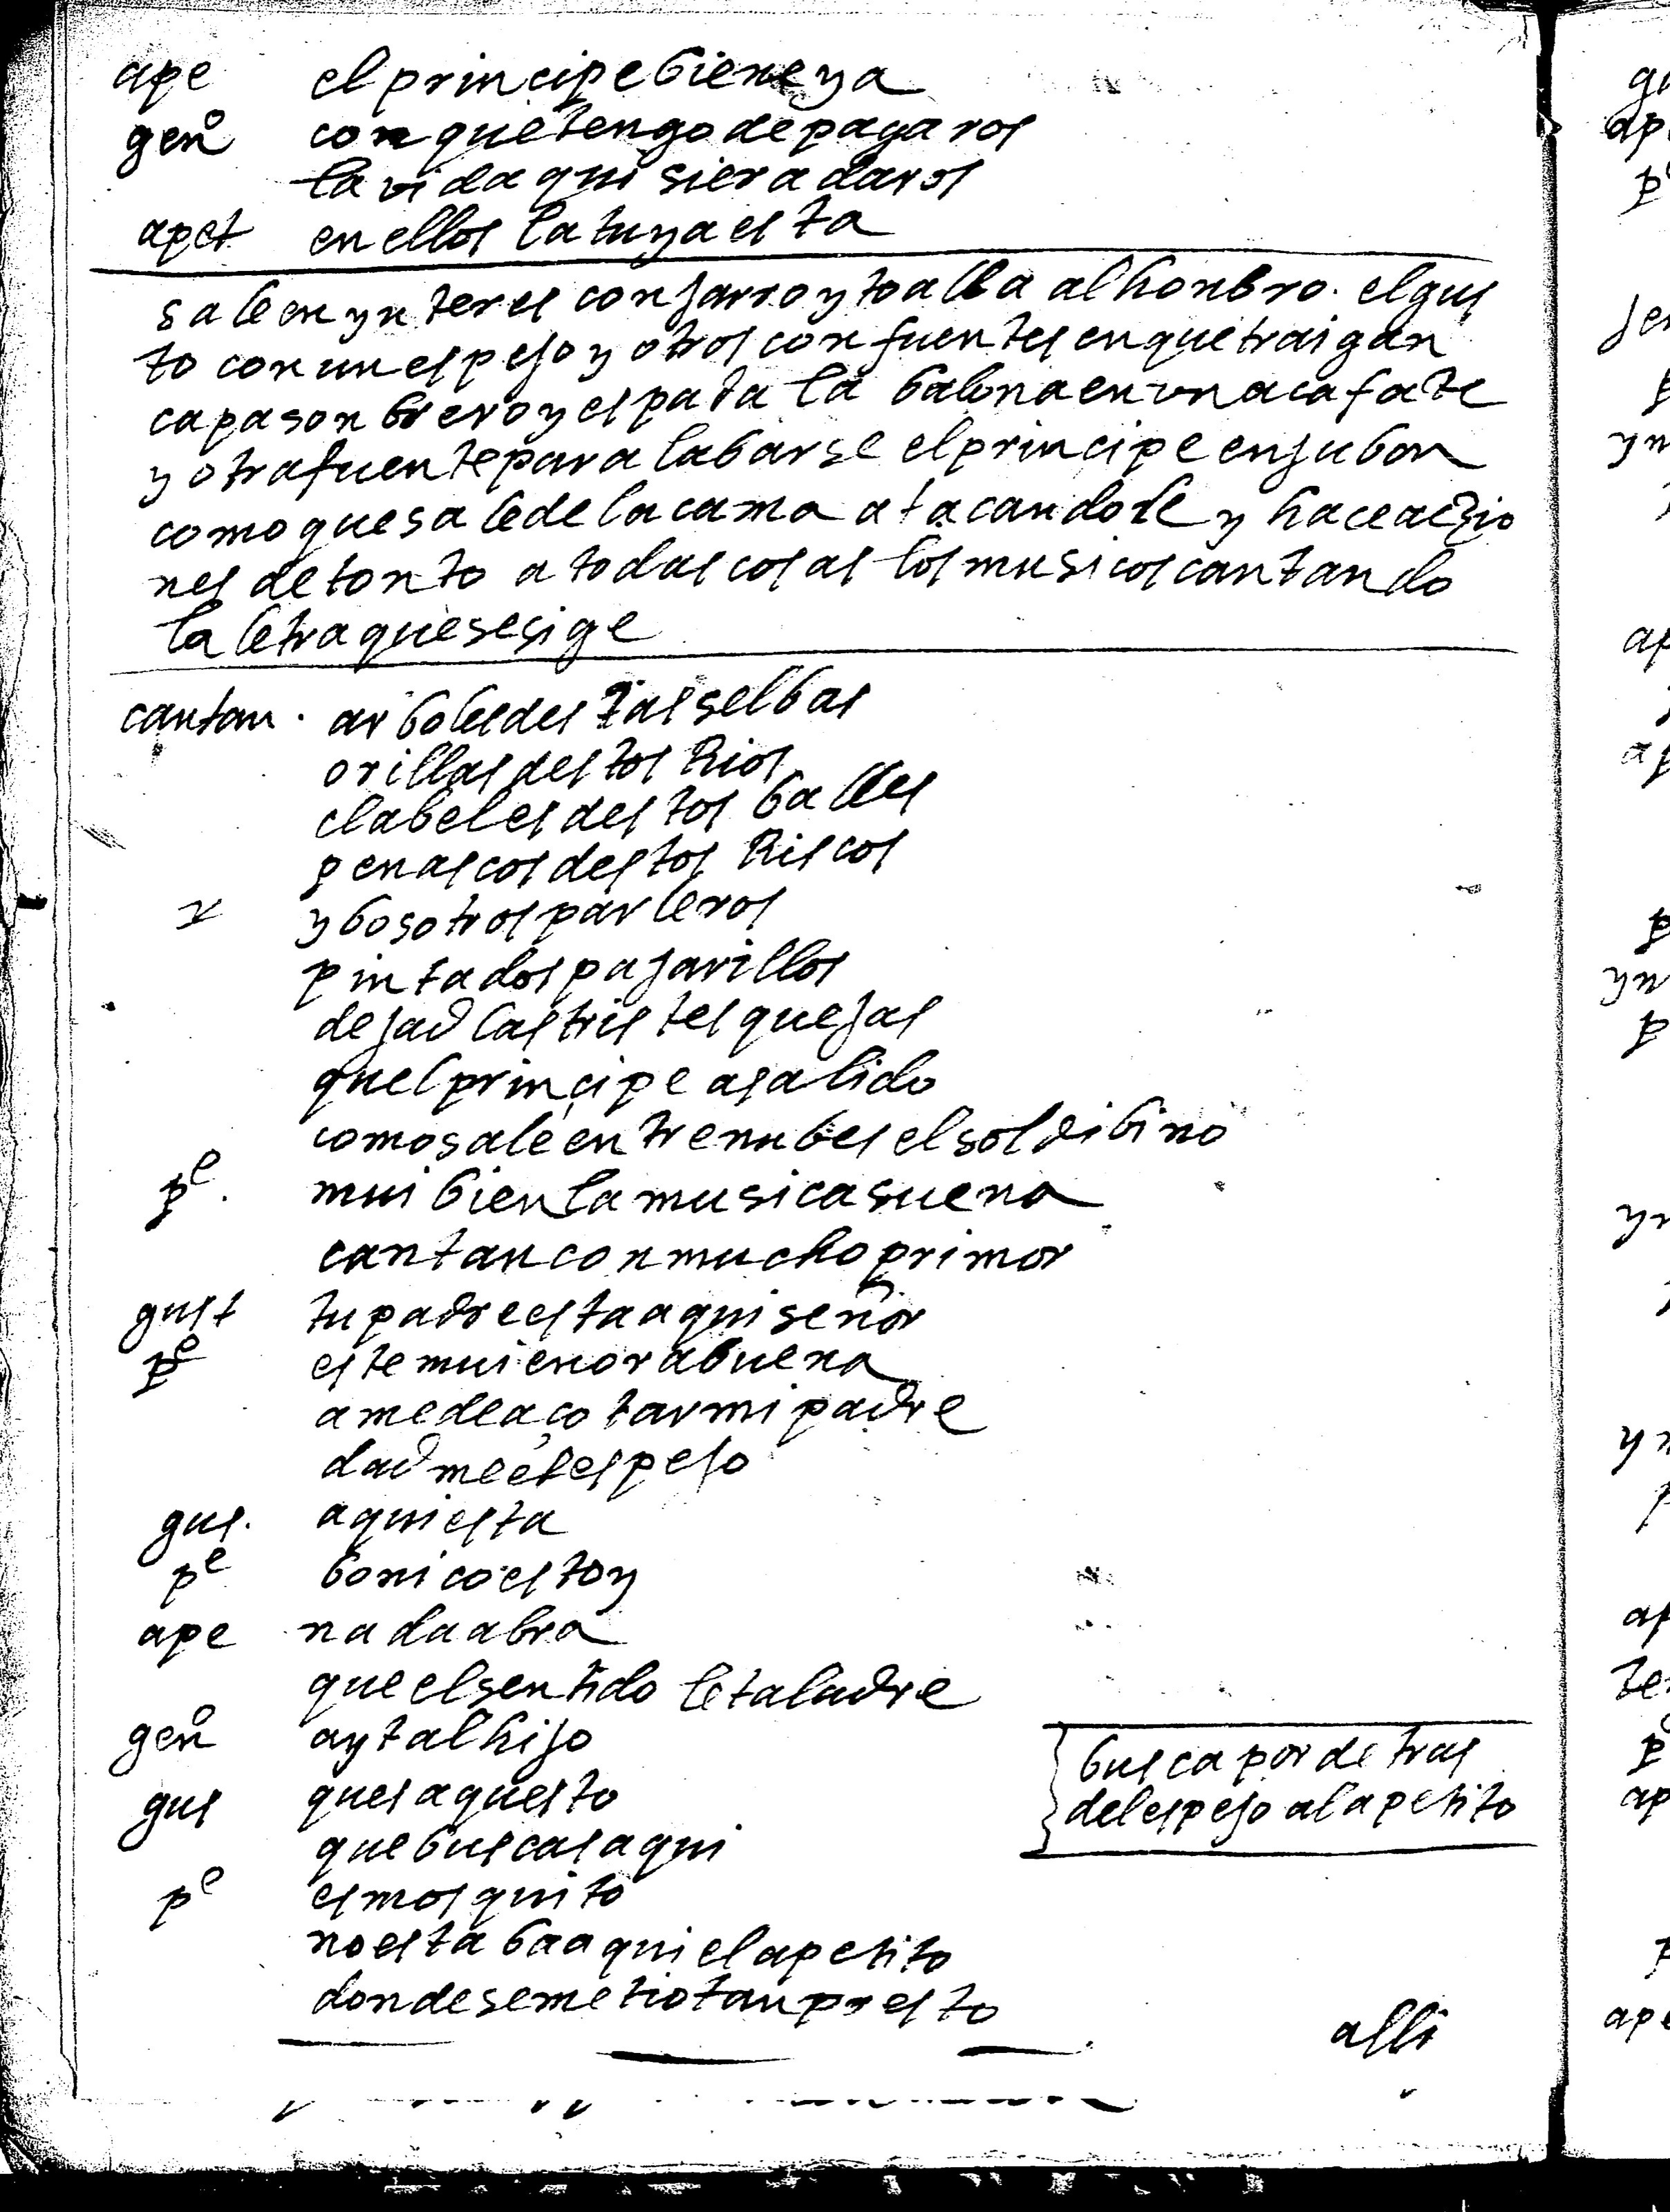 ape el principe biene ya
genº con que tengo de pagaros
la vida quisiera daros
apet en ellos la tuya esta
sale en ynteres con jarro y toalla al honbro. el gus
to con un espejo y otros con fuentes en que traigan
capa sonbrero y espada la balona en un acafate
y otra fuente para labarse el principe en jubon
como que sale de la cama atacandose y hace accio
nes de tonto a todas cosas los musicos cantando
la letra que se sige
cantan. arboles destas selbas
orillas destos Rios
clabeles destos balles
penascos destos Riscos
y bosotros parleros
pintados pajarillos
dejad las tristes quejas
quel principe a salido
como sale entre nubes el sol dibino
pe. mui bien la musica suena
cantan con mucho primor
gust tu padre esta aqui señor
pe este mui enorabuena
a me de açotar mi padre
dadme el espejo
gus. aqui esta
pe bonico estoy
ape nada abra
que el sentido le taladre
genº ay tal hijo
busca por detras
del espejo al apetito
gus ques aquesto
que buscas aqui
pe es mosquito
no estaba aqui el apetito
donde se metio tan presto
alli